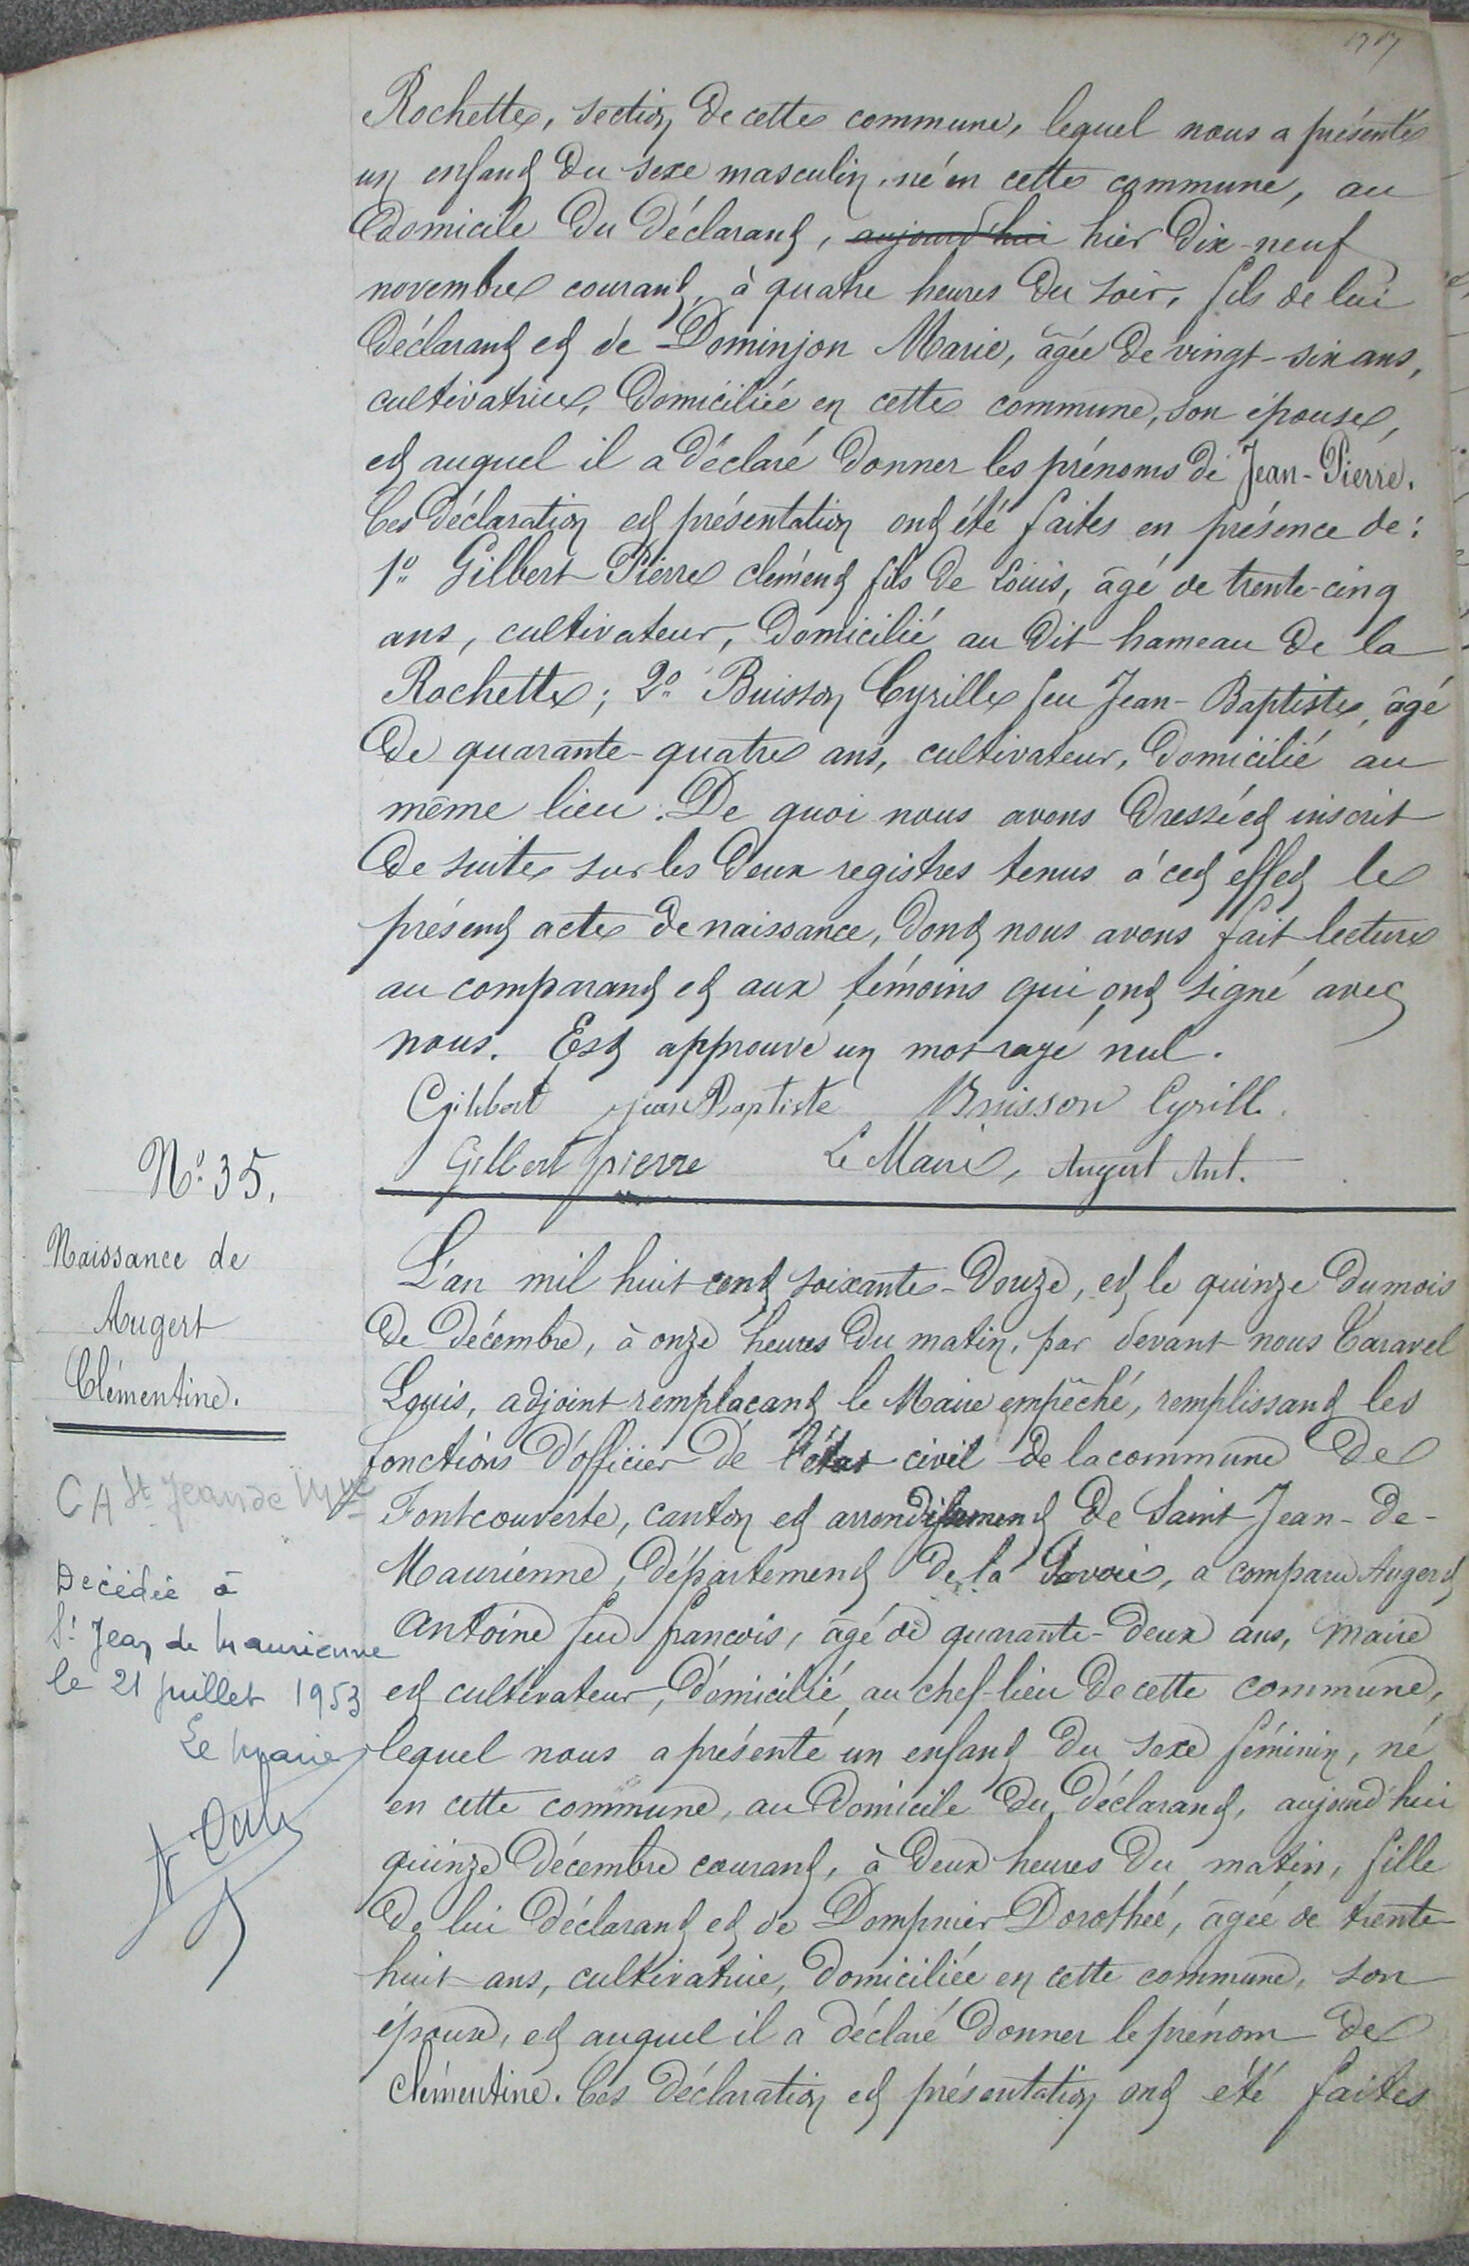 Rochette, section de cette commune, lequel nous a présenté
un enfant du sexe masculin, né en cette commune, au
domicile du déclarant, aujourd'hui hier dix-neuf
novembre courant, à quatre heures du soir, fils de lui
déclarant et de Dominjon Marie, âgée de vingt-six ans,
cultivatrice, domiciliée en cette commune, son épouse,
et auquel il a déclaré donner les prénoms de Jean-Pierre.
Ces déclaration et présentation ont été faites en présence de:
1º Gilbert Pierre clément fils de Louis, âgé de trente-cinq
ans, cultivateur, domicilié au dit hameau de la
Rochette; 2º Buisson Cyrille feu Jean-Baptiste, âgé
de quarante-quatre ans, cultivateur, domicilié au
même lieu. De quoi nous avons dressé et inscrit
de suite sur les deux registres tenus à cet effet le
présent acte de naissance, dont nous avons fait lecture
au comparant et aux témoins qui ont signé avec
nous. Est approuvé un mot rayé nul.
Gilbert jean Baptiste Buisson Cyrill.
Gilbert pierre Le Maire, Augert Ant.
Nº 35.
Naissance de
Augert
Clémentine.
CA St Jean de Mne
Décédée à
St Jean de Maurienne
le 21 juillet 1953
Le Maire
L'an mil huit cent soixante-douze, et le quinze du mois
de décembre, à onze heures du matin, par devant nous Caravel
Louis, adjoint remplaçant le Maire empêché, remplissant les
fonctions d'officier de l'état civil de la commune de
Fontcouverte, canton et arrondissement de Saint Jean-de-
Maurienne, département de la Savoie, a comparu Augert
Antoine feu françois, âgé de quarante-deux ans, maire
et cultivateur, domicilié au chef-lieu de cette commune,
lequel nous a présenté un enfant du sexe féminin, né
en cette commune, au domicile du déclarant, aujourd'hui
quinze décembre courant, à deux heures du matin, fille
de lui déclarant et de Dompnier Dorothée, âgée de trente-
huit ans, cultivatrice, domiciliée en cette commune, son
épouse, et auquel il a déclaré donner le prénom de
Clémentine. Ces déclaration et présentation ont été faites